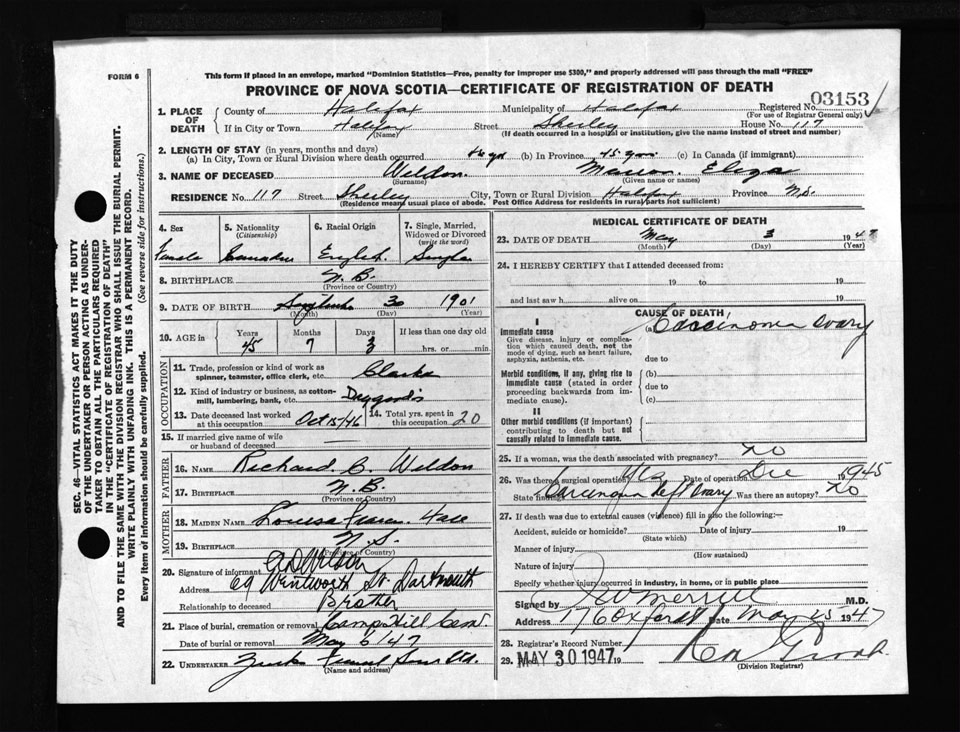 FORM 6
This form if placed in an envelope, marked "Dominion Statistics—Free, penalty for improper use $300," and properly addressed will pass through the mail "FREE"
PROVINCE OF NOVA SCOTIA—CERTIFICATE OF REGISTRATION OF DEATH
1. PLACE OF DEATH County of Halifax Municipality of Halifax Registered No. 03153
(For use of Registrar General only)
If in City or Town Halifax (Name) Street Shirley House No. 117
(If death occurred in a hospital or institution, give the name instead of street and number)
2. LENGTH OF STAY (in years, months and days)
(a) In City, Town or Rural Division where death occurred yrs (b) In Province 45 yrs (c) In Canada (if immigrant)
3. NAME OF DECEASED Weldon (Surname) Marion Eliza (Given name or names)
RESIDENCE No. 117 Street Shirley City, Town or Rural Division Halifax Province N.S.
(Residence means usual place of abode. Post Office Address for residents in rural parts not sufficient)
4. Sex
Female
5. Nationality (Citizenship)
Canadian
6. Racial Origin
English
7. Single, Married, Widowed or Divorced (write the word)
Single
8. BIRTHPLACE N.B.
(Province or Country)
9. DATE OF BIRTH September 30 1901
(Month) (Day) (Year)
10. AGE in Years Months Days If less than one day old
45 7 3 hrs. or min.
OCCUPATION
11. Trade, profession or kind of work as spinner, teamster, office clerk, etc. Clerk
12. Kind of industry or business, as cotton-mill, lumbering, bank, etc. Drygoods
13. Date deceased last worked at this occupation Oct 15/46
14. Total yrs. spent in this occupation 20
15. If married give name of wife or husband of deceased
FATHER
16. NAME Richard C. Weldon
17. BIRTHPLACE N.B.
(Province or Country)
MOTHER
18. MAIDEN NAME Louisa Hare
19. BIRTHPLACE N.S.
(Province or Country)
20. Signature of informant Weldon
Address 69 Wentworth St. Dartmouth
Relationship to deceased Brother
21. Place of burial, cremation or removal Camp Hill Cem
Date of burial or removal May 6/47
22. UNDERTAKER Funeral Ltd.
(Name and address)
MEDICAL CERTIFICATE OF DEATH
23. DATE OF DEATH May 3 1947
(Month) (Day) (Year)
24. I HEREBY CERTIFY that I attended deceased from:
19 to 19
and last saw h alive on 19
CAUSE OF DEATH
I
Immediate cause (a) Carcinoma Ovary
Give disease, injury or complication which caused death, not the mode of dying, such as heart failure, asphyxia, asthenia, etc.
due to
Morbid conditions, if any, giving rise to immediate cause (stated in order proceeding backwards from immediate cause).
(b)
due to
(c)
II
Other morbid conditions (if important) contributing to death but not causally related to immediate cause.
25. If a woman, was the death associated with pregnancy? No
26. Was there a surgical operation? Yes Date of operation Dec 1945
State findings Carcinoma left Ovary Was there an autopsy? No
27. If death was due to external causes (violence) fill in also the following:—
Accident, suicide or homicide? Date of injury 19
(State which)
Manner of injury
(How sustained)
Nature of injury
Specify whether injury occurred in industry, in home, or in public place
Signed by Merrill M.D.
Address 176 Oxford St Date May 1947
28. Registrar's Record Number
29. MAY 30 1947 19
(Division Registrar)
SEC. 46—VITAL STATISTICS ACT MAKES IT THE DUTY
OF THE UNDERTAKER OR PERSON ACTING AS UNDER-
TAKER TO OBTAIN ALL THE PARTICULARS REQUIRED
IN THE "CERTIFICATE OF REGISTRATION OF DEATH"
AND TO FILE THE SAME WITH THE DIVISION REGISTRAR WHO SHALL ISSUE THE BURIAL PERMIT.
WRITE PLAINLY WITH UNFADING INK. THIS IS A PERMANENT RECORD.
Every item of information should be carefully supplied. (See reverse side for instructions.)